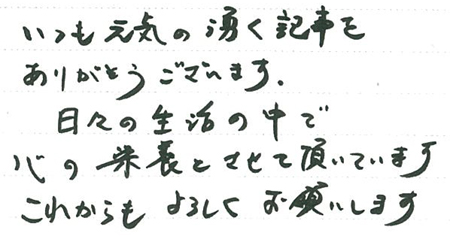 いつも元気の湧く記事を
ありがとうございます.
日々の生活の中で
心の栄養とさせて頂いています
これからもよろしくお願いします